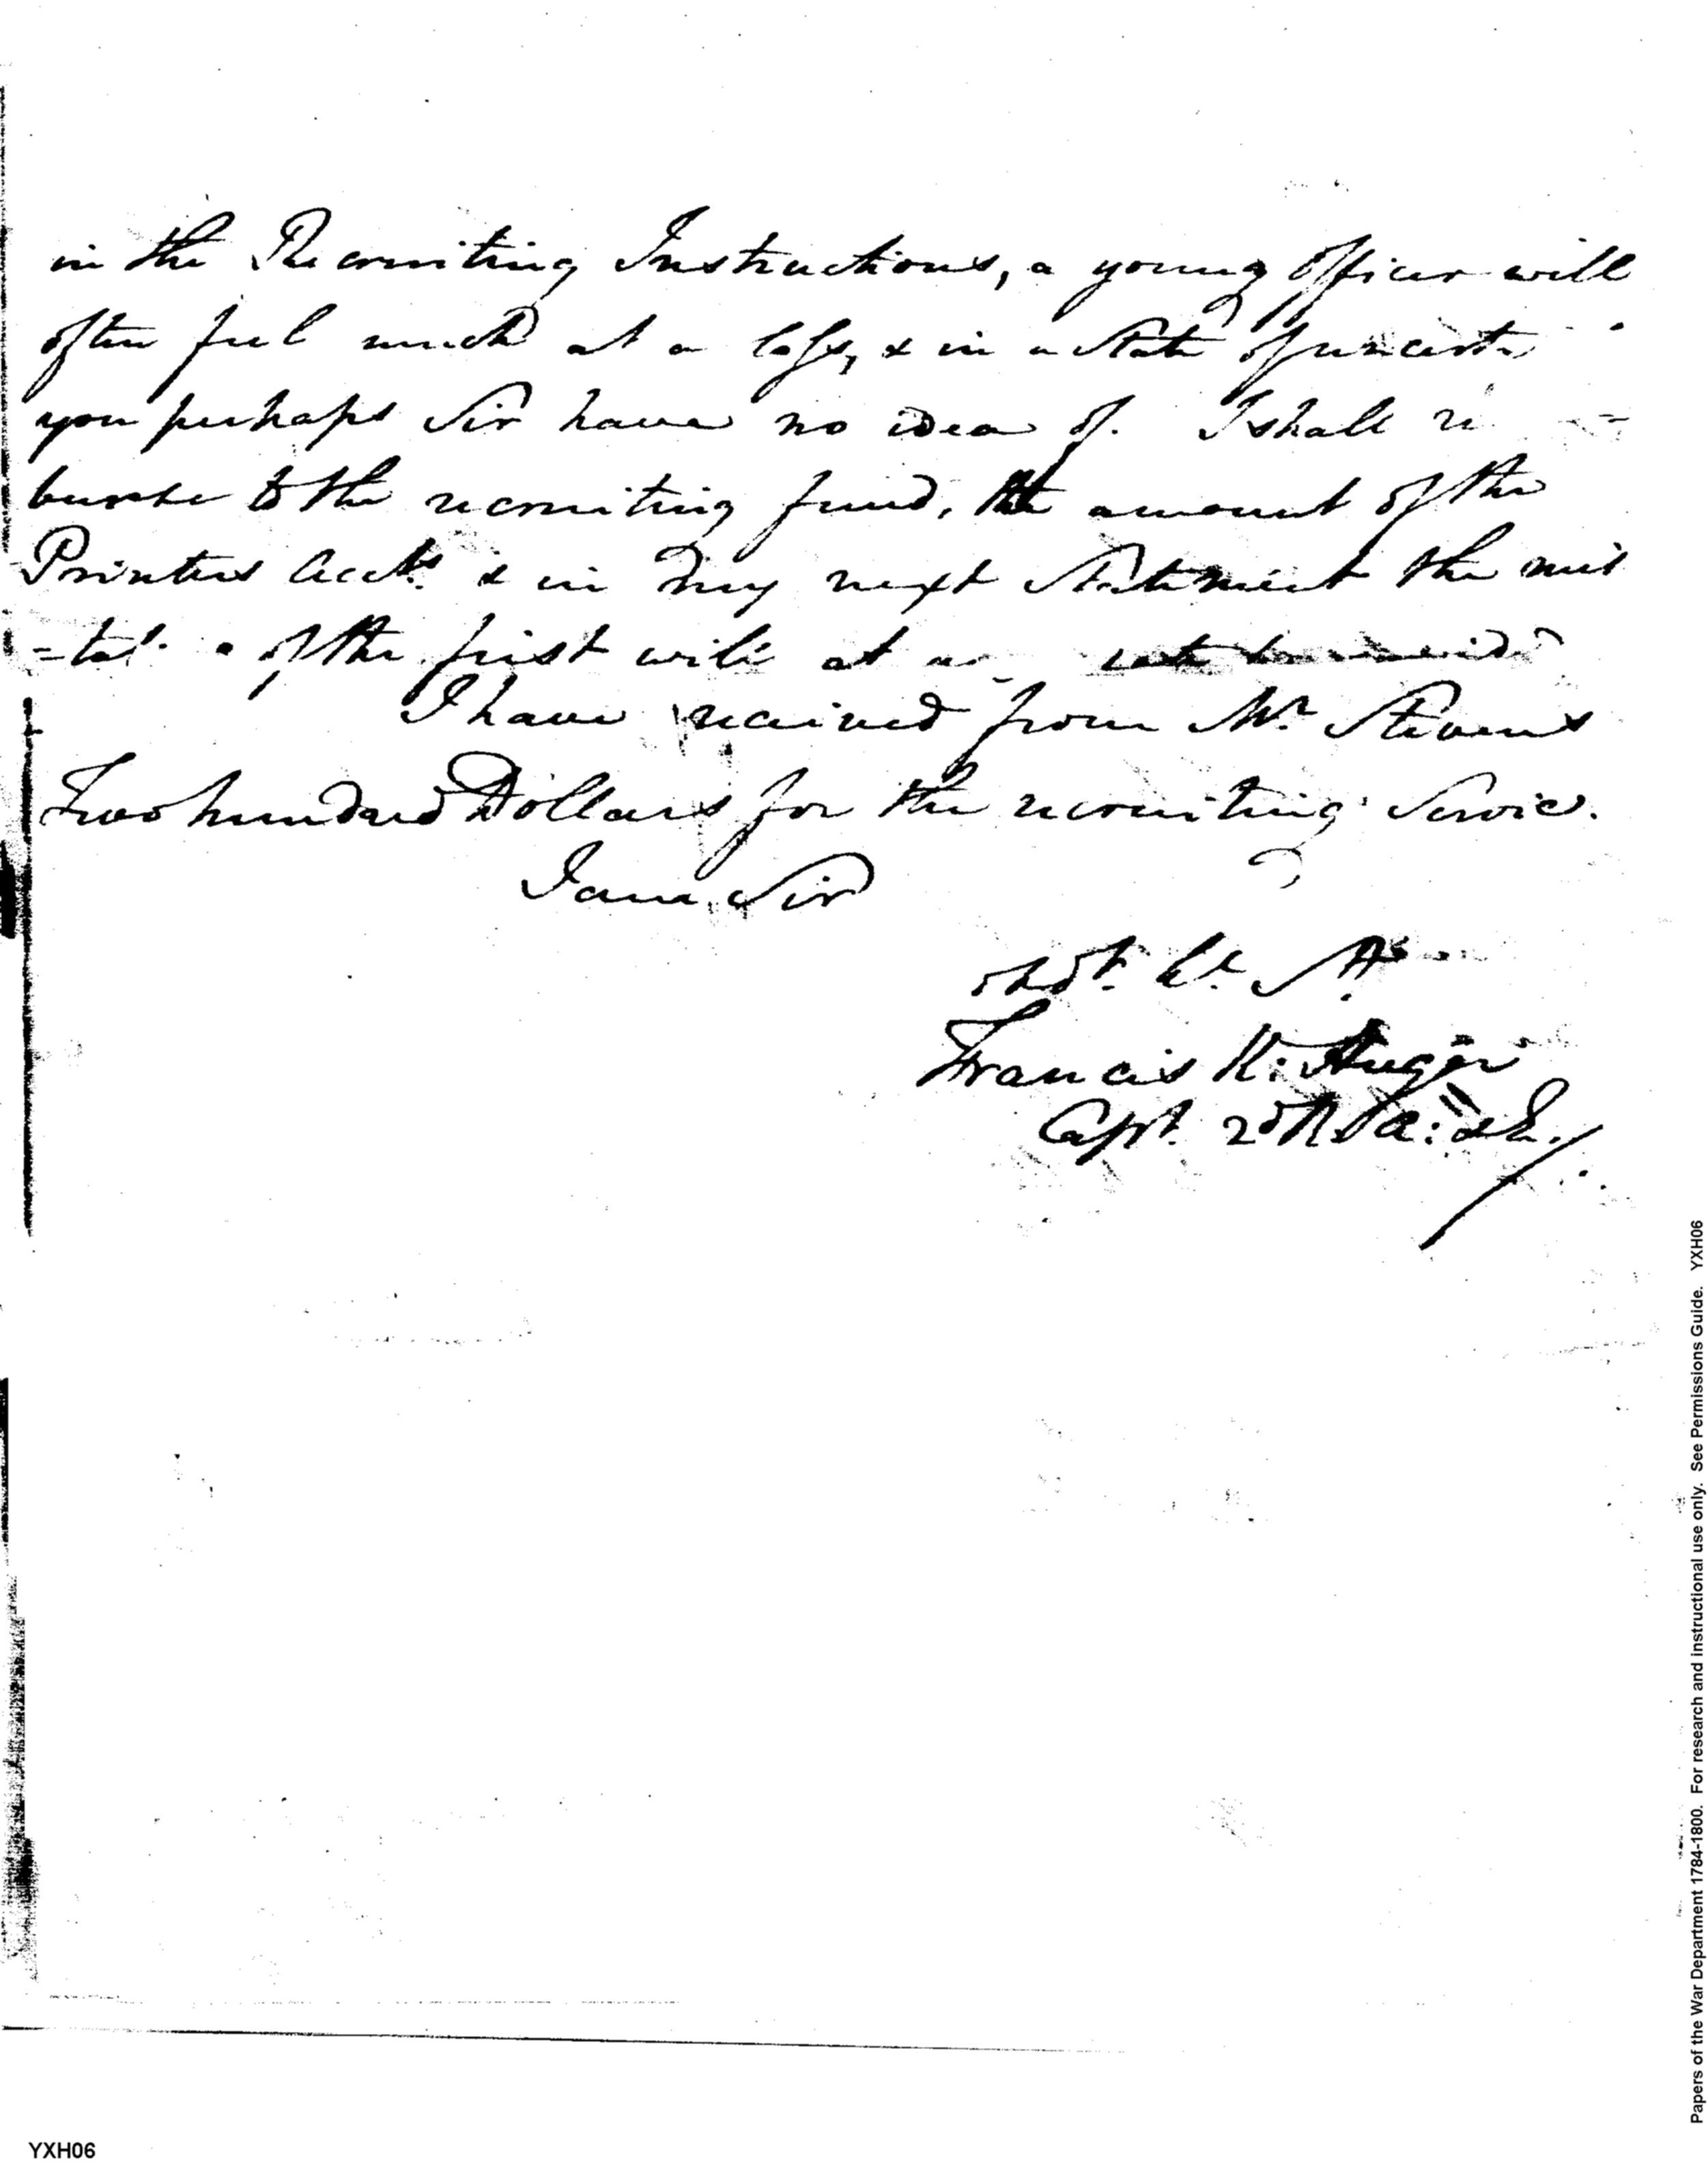 in the Recruiting Instructions, a young officer will
often feel much at a loss, & in a state of uncert
you perhaps Sir have no idea of. I shall re
burse to the recruiting fund, the amount of the
Printers Accts. & in my next statement the mis
=tak of the first will at
I have received from Mr. Stevens
Two hundred Dollars for the recruiting Service.
I am Sir
obdt. St.
Francis K: Huger
Capt. 2d R A: & E.
Papers of the War Department 1784-1800. For research and instructional use only. See Permissions Guide. YXH06
YXH06